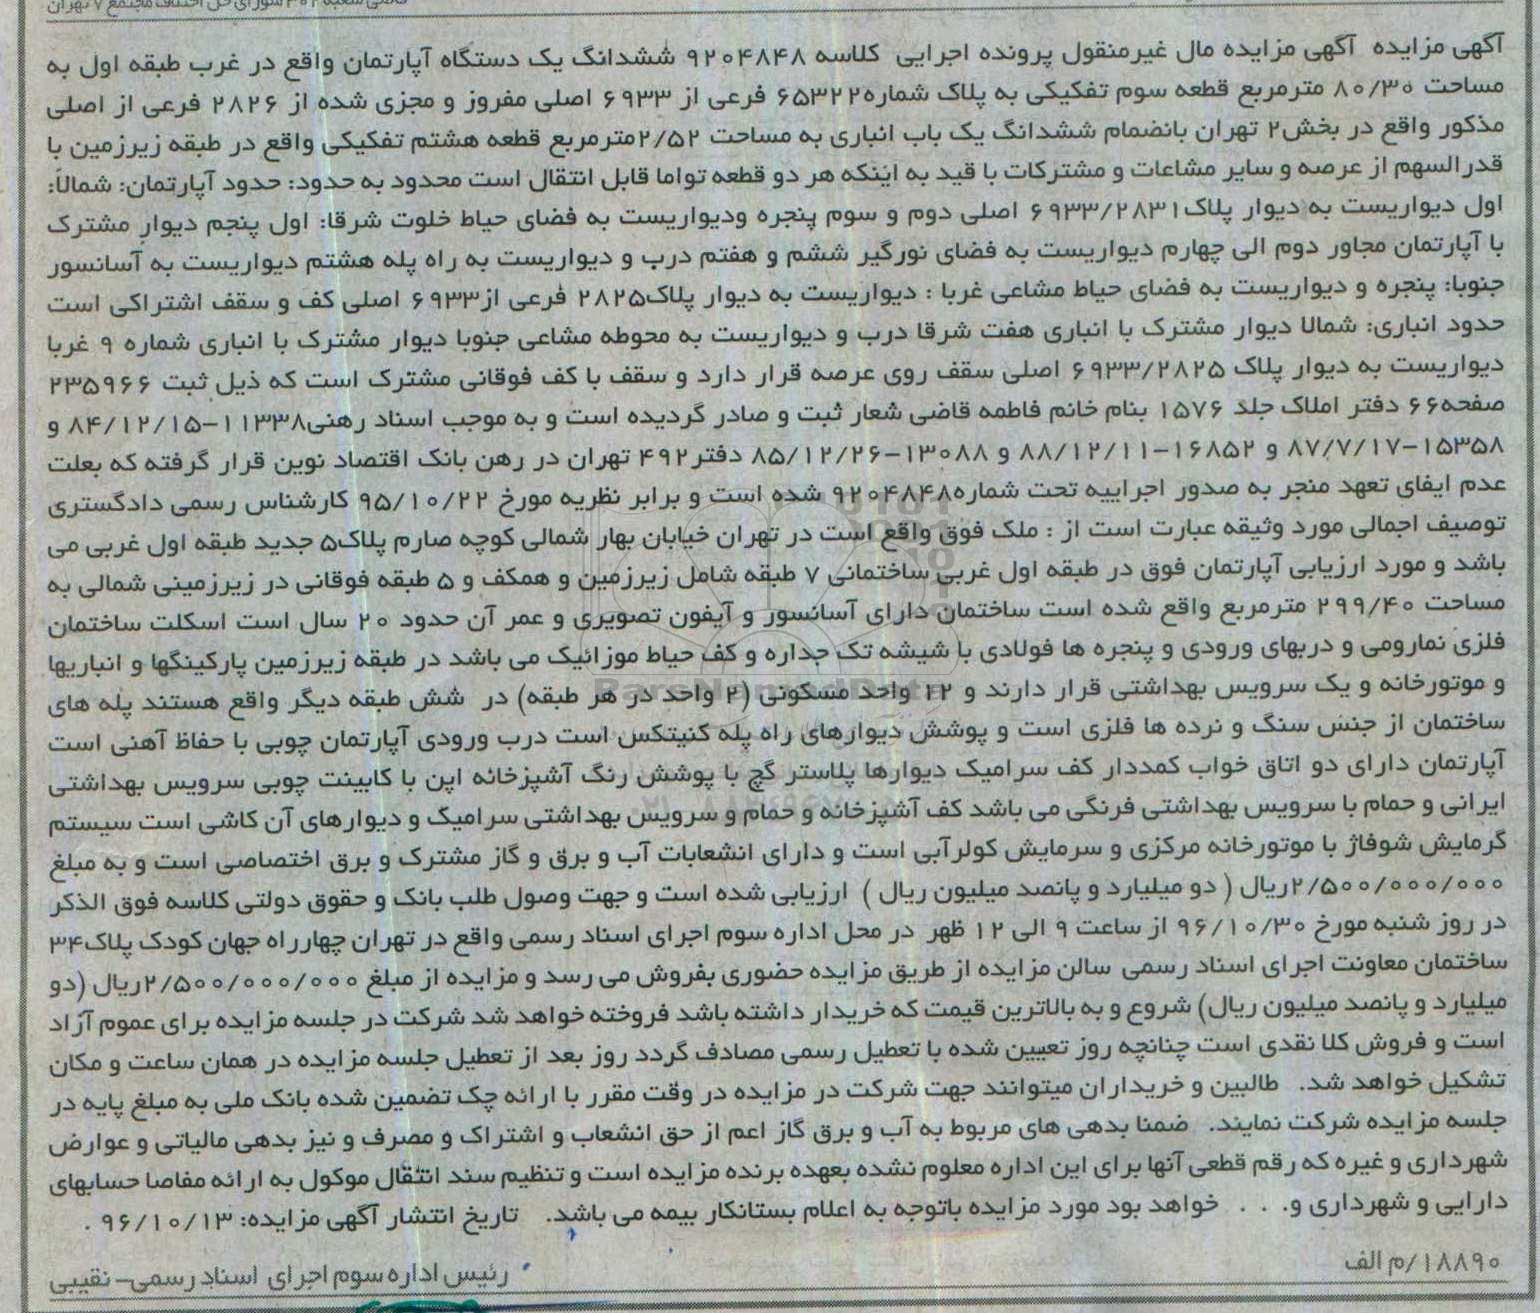 آگهی مزایده آگهی مزایده مال غیرمنقول پرونده اجرایی کلاسه ۹۲۰۴۸۴۸ ششدانگ یک دستگاه آپارتمان واقع در غرب طبقه اول به
مساحت ۸۰/۳۰ مترمربع قطعه سوم تفکیکی به پلاک شماره۶۵۳۲۲ فرعی از ۶۹۳۳ اصلی مفروز و مجزی شده از ۲۸۲۶ فرعی از اصلی
مذکور واقع در بخش۲ تهران بانضمام ششدانگ یک باب انباری به مساحت ۲/۵۲مترمربع قطعه هشتم تفکیکی واقع در طبقه زیرزمین با
قدرالسهم از عرصه و سایر مشاعات و مشترکات با قید به اینکه هر دو قطعه تواما قابل انتقال است محدود به حدود: حدود آپارتمان: شمالاً:
اول دیواریست به دیوار پلاک۶۹۳۳/۲۸۳۱ اصلی دوم و سوم پنجره ودیواریست به فضای حیاط خلوت شرقا: اول پنجم دیوار مشترک
با آپارتمان مجاور دوم الی چهارم دیواریست به فضای نورگیر ششم و هفتم درب و دیواریست به راه پله هشتم دیواریست به آسانسور
جنوبا: پنجره و دیواریست به فضای حیاط مشاعی غربا : دیواریست به دیوار پلاک۲۸۲۵ فرعی از۶۹۳۳ اصلی کف و سقف اشتراکی است
حدود انباری: شمالا دیوار مشترک با انباری هفت شرقا درب و دیواریست به محوطه مشاعی جنوبا دیوار مشترک با انباری شماره ۹ غربا
دیواریست به دیوار پلاک ۶۹۳۳/۲۸۲۵ اصلی سقف روی عرصه قرار دارد و سقف با کف فوقانی مشترک است که ذیل ثبت ۲۳۵۹۶۶
صفحه۶۶ دفتر املاک جلد ۱۵۷۶ بنام خانم فاطمه قاضی شعار ثبت و صادر گردیده است و به موجب اسناد رهنی۱۱۳۳۸-۸۴/۱۲/۱۵ و
۱۵۳۵۸-۸۷/۷/۱۷ و ۱۶۸۵۲-۸۸/۱۲/۱۱ و ۱۳۰۸۸-۸۵/۱۲/۲۶ دفتر۴۹۲ تهران در رهن بانک اقتصاد نوین قرار گرفته که بعلت
عدم ایفای تعهد منجر به صدور اجراییه تحت شماره۹۲۰۴۸۴۸ شده است و برابر نظریه مورخ ۹۵/۱۰/۲۲ کارشناس رسمی دادگستری
توصیف اجمالی مورد وثیقه عبارت است از : ملک فوق واقع است در تهران خیابان بهار شمالی کوچه صارم پلاک۵ جدید طبقه اول غربی می
باشد و مورد ارزیابی آپارتمان فوق در طبقه اول غربی ساختمانی ۷ طبقه شامل زیرزمین و همکف و ۵ طبقه فوقانی در زیرزمینی شمالی به
مساحت ۲۹۹/۴۰ مترمربع واقع شده است ساختمان دارای آسانسور و آیفون تصویری و عمر آن حدود ۲۰ سال است اسکلت ساختمان
فلزی نمارومی و دربهای ورودی و پنجره ها فولادی با شیشه تک جداره و کف حیاط موزائیک می باشد در طبقه زیرزمین پارکینگها و انباریها
و موتورخانه و یک سرویس بهداشتی قرار دارند و ۱۲ واحد مسکونی (۲ واحد در هر طبقه) در شش طبقه دیگر واقع هستند پله های
ساختمان از جنس سنگ و نرده ها فلزی است و پوشش دیوارهای راه پله کنیتکس است درب ورودی آپارتمان چوبی با حفاظ آهنی است
آپارتمان دارای دو اتاق خواب کمددار کف سرامیک دیوارها پلاستر گچ با پوشش رنگ آشپزخانه اپن با کابینت چوبی سرویس بهداشتی
ایرانی و حمام با سرویس بهداشتی فرنگی می باشد کف آشپزخانه و حمام و سرویس بهداشتی سرامیک و دیوارهای آن کاشی است سیستم
گرمایش شوفاژ با موتورخانه مرکزی و سرمایش کولرآبی است و دارای انشعابات آب و برق و گاز مشترک و برق اختصاصی است و به مبلغ
۲/۵۰۰/۰۰۰/۰۰۰ریال ( دو میلیارد و پانصد میلیون ریال ) ارزیابی شده است و جهت وصول طلب بانک و حقوق دولتی کلاسه فوق الذکر
در روز شنبه مورخ ۹۶/۱۰/۳۰ از ساعت ۹ الی ۱۲ ظهر در محل اداره سوم اجرای اسناد رسمی واقع در تهران چهارراه جهان کودک پلاک۳۴
ساختمان معاونت اجرای اسناد رسمی سالن مزایده از طریق مزایده حضوری بفروش می رسد و مزایده از مبلغ ۲/۵۰۰/۰۰۰/۰۰۰ریال (دو
میلیارد و پانصد میلیون ریال) شروع و به بالاترین قیمت که خریدار داشته باشد فروخته خواهد شد شرکت در جلسه مزایده برای عموم آزاد
است و فروش کلا نقدی است چنانچه روز تعیین شده با تعطیل رسمی مصادف گردد روز بعد از تعطیل جلسه مزایده در همان ساعت و مکان
تشکیل خواهد شد. طالبین و خریداران میتوانند جهت شرکت در مزایده در وقت مقرر با ارائه چک تضمین شده بانک ملی به مبلغ پایه در
جلسه مزایده شرکت نمایند. ضمنا بدهی های مربوط به آب و برق گاز اعم از حق انشعاب و اشتراک و مصرف و نیز بدهی مالیاتی و عوارض
شهرداری و غیره که رقم قطعی آنها برای این اداره معلوم نشده بعهده برنده مزایده است و تنظیم سند انتقال موکول به ارائه مفاصا حسابهای
دارایی و شهرداری و. . . خواهد بود مورد مزایده باتوجه به اعلام بستانکار بیمه می باشد. تاریخ انتشار آگهی مزایده: ۹۶/۱۰/۱۳ .
۱۸۸۹۰/م الف
رئیس اداره سوم اجرای اسناد رسمی- نقیبی